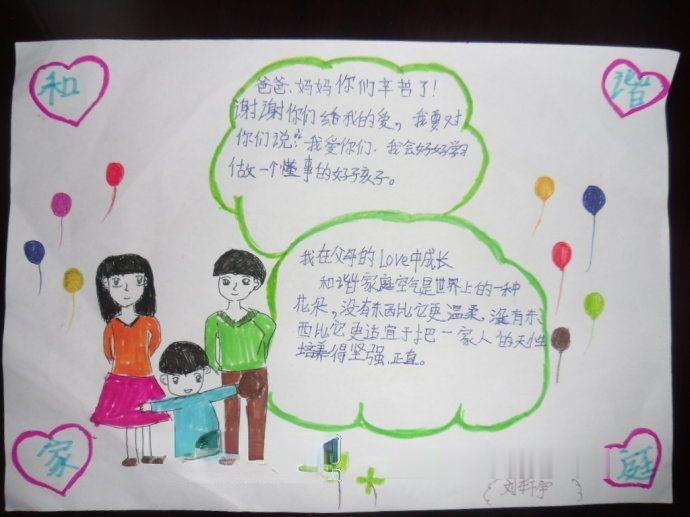 和
谐
爸爸、妈妈你们辛苦了！
谢谢你们给我的爱，我要对
你们说：“我爱你们，我会好好学习
做一个懂事的好孩子。
我在父母的Love中成长
和谐家庭空气是世界上的一种
花朵，没有东西比它更温柔，没有东
西比它更适宜于把一家人的天性
培养得坚强、正直。
家
庭
刘轩宇